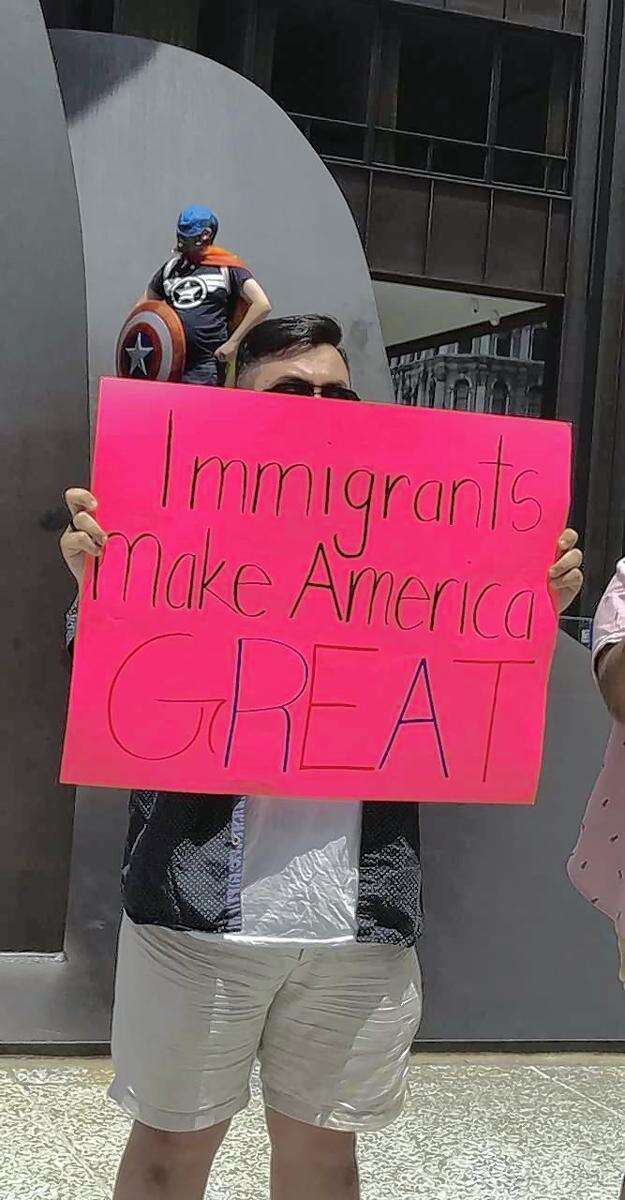 Immigrants
Make America
GREAT